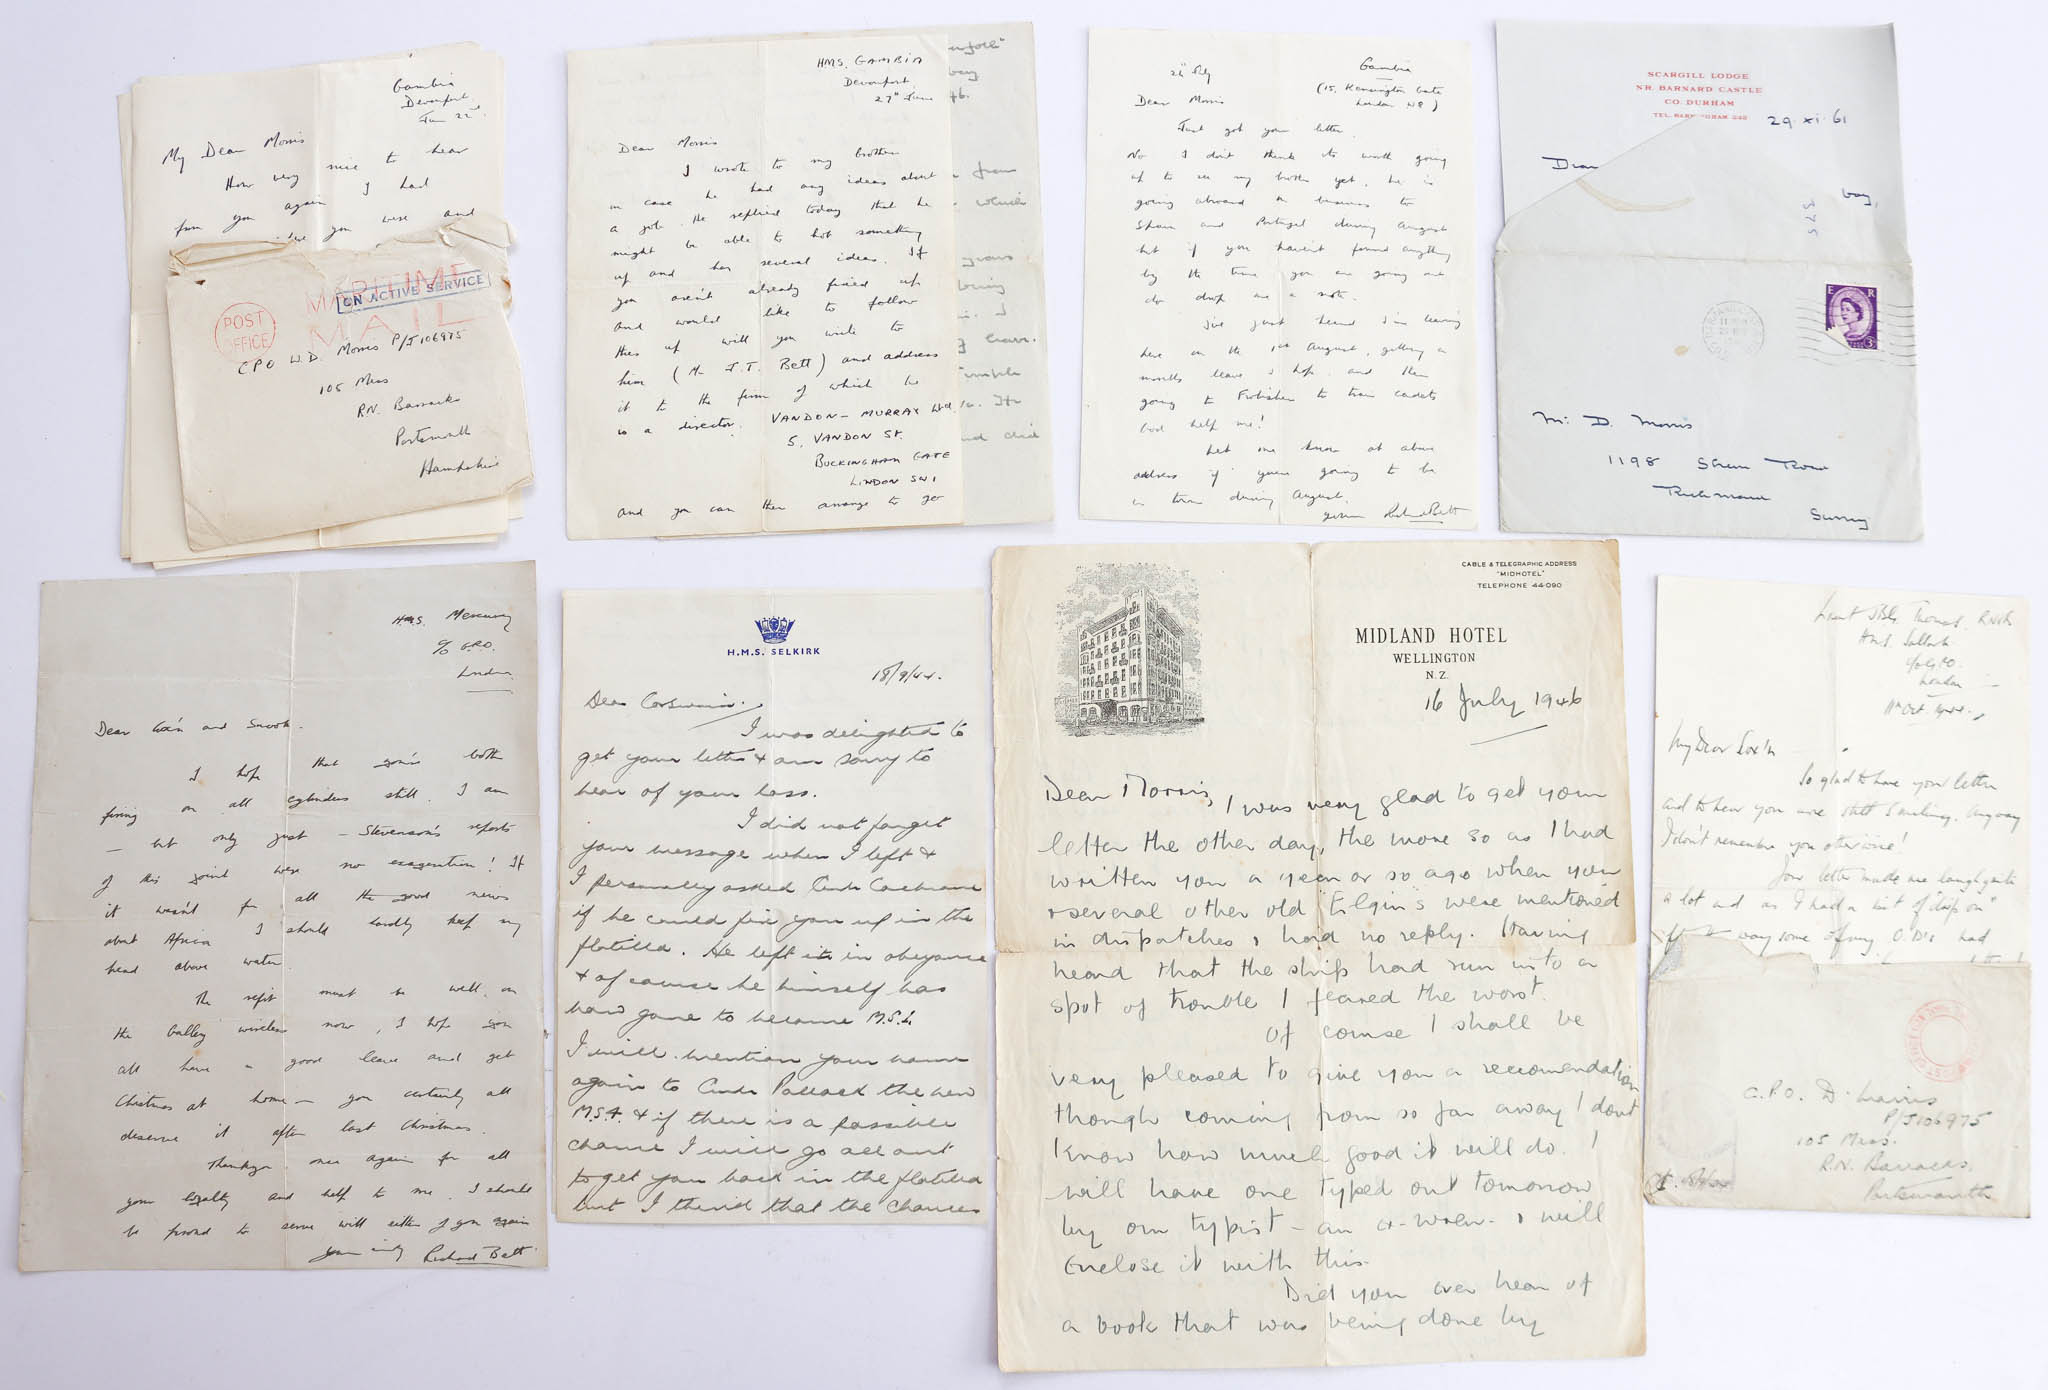 Gambia
Devonport
June 22nd
My Dear Morris
How very nice to hear
from you again I had
you were and
POST
OFFICE
MARITIME
MAIL
ON ACTIVE SERVICE
CPO W.D. Morris P/J106975
105 Mess
R.N. Barracks
Portsmouth
Hampshire
HMS. GAMBIA
Devonport
27th June 46.
Dear Morris
I wrote to my brother
in case he had any ideas about
a job. He replied today that he
might be able to hot something
up and has several ideas. If
you aren't already fixed up
and would like to follow
this up will you write to
him (Mr J.T. Bett) and address
it to the firm of which he
is a director. VANDON-MURRAY Ltd.
5, VANDON ST.
BUCKINGHAM GATE
LONDON SW1
and you can then arrange to go
from
which
years
being
simple
and did
Gambia
(15, Kensington Gate
London W8)
Dear Morris
Just got your letter.
No I don't think its worth going
up to see my brother yet, he is
going abroad on business to
Spain and Portugal during August
but if you haven't found anything
by the time you are going out
do drop me a note.
I've just heard I'm leaving
here on the 1st August, getting a
months leave I hope and then
going to Frobisher to train cadets
God help me!
Let me know at above
address if you're going to be
in town during August.
yours Richard Bett
SCARGILL LODGE
NR. BARNARD CASTLE
CO. DURHAM
29.xi.61
Dear
375
E R
3D
Mr. D. Morris
119B Sheen Road
Richmond
Surrey
H.M.S. Mercury
c/o G.P.O.
London
Dear Cox'n and Snook.
I hope that you're both
firing on all cylinders still. I am
— but only just — Stevenson's reports
of this joint were no exageration! If
it wasn't for all the good news
about Africa I should hardly keep my
head above water.
The refit must be well on
the Galley wireless now, I hope you
all have a good leave and get
Christmas at home — you certainly all
deserve it after last Christmas.
Thankyou once again for all
your loyalty and help to me. I should
be proud to serve with either of you again
Richard Bett
H.M.S. SELKIRK
18/9/44.
Dear Coxswain.
I was delighted to
get your letter & am sorry to
hear of your loss.
I did not forget
your message when I left &
I personally asked Cmdr Cochrane
if he could fix you up in the
flotilla. He left it in abeyance
& of course he himself has
now gone to become M.S.L.
I will mention your name
again to Cmdr Pollock the new
M.S.F. & if there is a possible
chance I will go all out
to get you back in the flotilla
but I think that the chances
CABLE & TELEGRAPHIC ADDRESS
"MIDHOTEL"
TELEPHONE 44-090
MIDLAND HOTEL
WELLINGTON
N.Z.
16 July 1946
Dear Morris,
I was very glad to get your
letter the other day, the more so as I had
written you a year or so ago when you
& several other old "Elgin"s were mentioned
in dispatches & had no reply. Having
heard that the ship had run into a
spot of trouble I feared the worst.
Of course I shall be
very pleased to give you a recomendation
though coming from so far away I dont
know how much good it will do. I
will have one typed out tomorrow
by our typist - an ex-wren - & will
enclose it with this.
Did you ever hear of
a book that was being done by
Lieut Thomas. RNVR
H.M.S.
c/o G.P.O.
London
11th Oct. 1944.
My Dear Cox'n
So glad to have your letter
and to hear you are still smiling. Anyway
I don't remember you otherwise!
Your letter made me laugh quite
a lot and as I had a bit of "drip on"
way some of my O.D's had
C.P.O. D. Morris
P/J106975
105 Mess.
R.N. Barracks,
Portsmouth